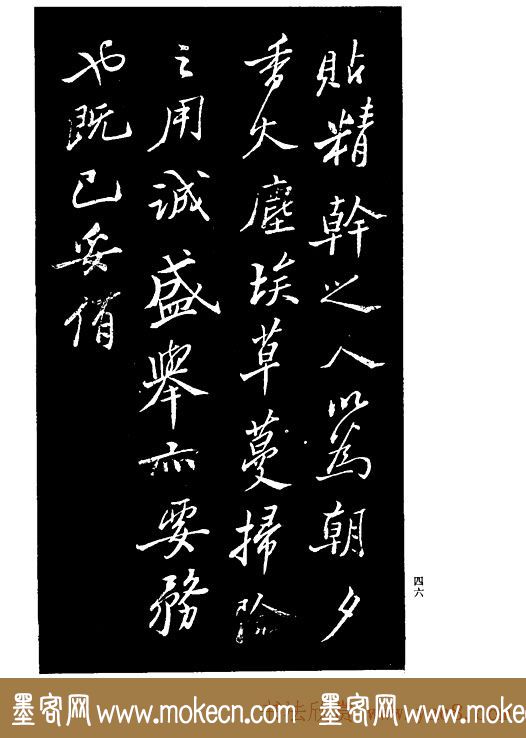 貼精幹之人以為朝夕
香火塵埃草蔓掃除
之用誠盛舉亦要務
也既已妥俏
四六
墨客网 www.mokecn.com 墨客网 www.mokecn.com